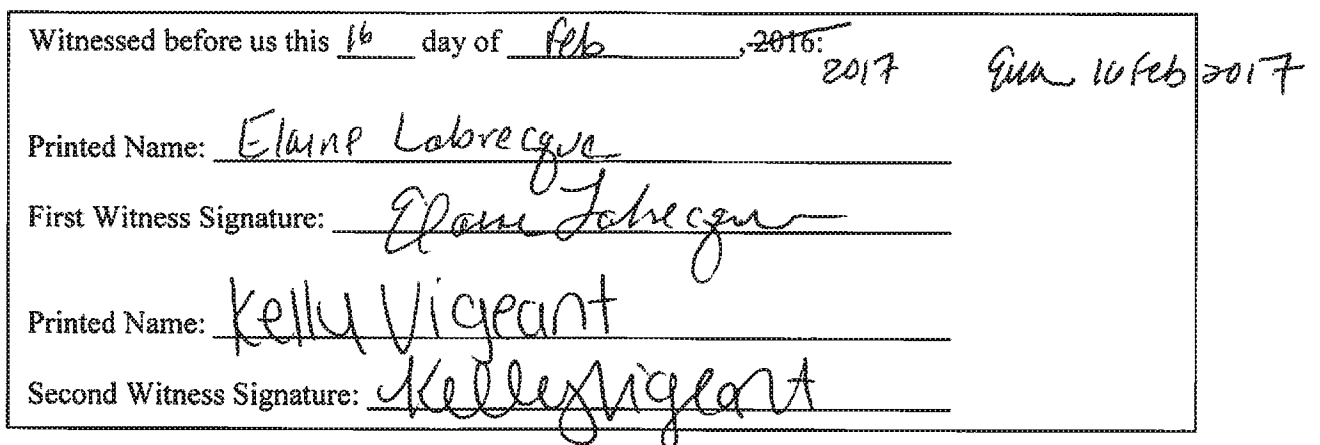 Witnessed before us this 16 day of Feb, 2016:
2017 16 Feb 2017
Printed Name: Elaine Labrecque
First Witness Signature: Elaine Labrecque
Printed Name: Kelly Vigeant
Second Witness Signature: Kelly Vigeant